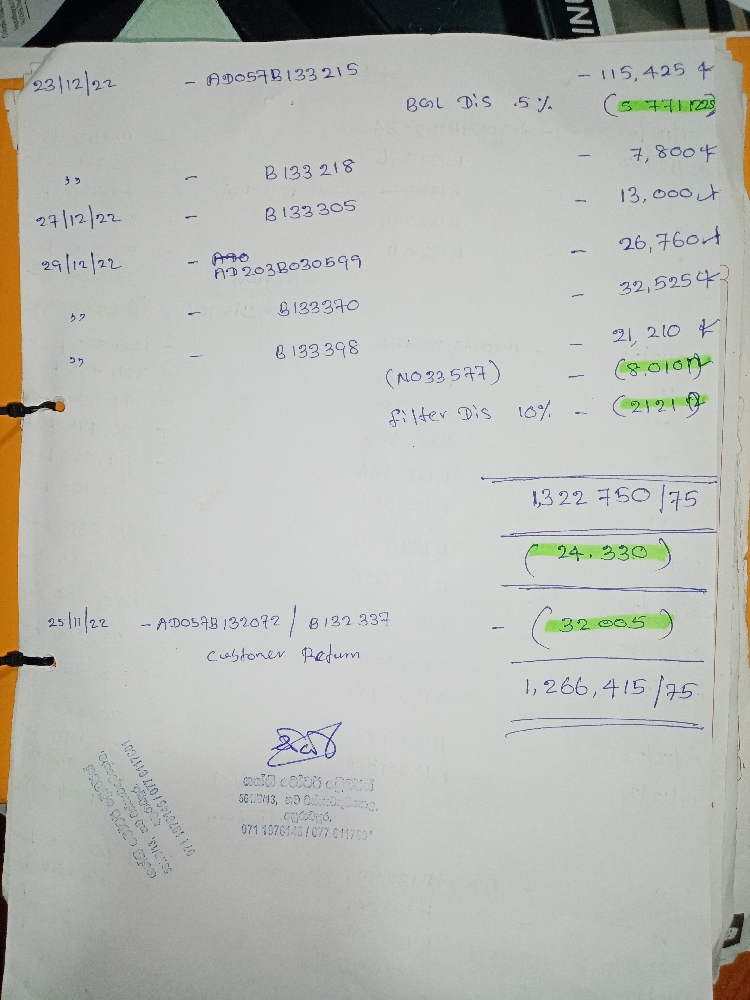 23/12/22 - AD057B133215 - 115,425
BGL Dis .5% (5 771
,, - B133218 - 7,800
27/12/22 - B133305 - 13,000
29/12/22 - AD203B030599 - 26,760
,, - B133370 - 32,525
,, - B133398 - 21,210
(NO33577) - (8,010
filter Dis 10% - (2121
1,322 750/75
(24.330)
25/11/22 - AD057B132072 / B132337 - (32005)
Customer Return
1,266,415/75
071 1876146 / 077 6117601